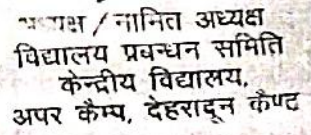 अध्यक्ष / नामित अध्यक्ष
विद्यालय प्रबन्धन समिति
केन्द्रीय विद्यालय,
अपर कैम्प, देहरादून कैण्ट